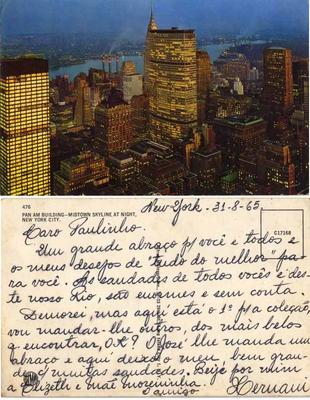 476
PAN AM BUILDING—MIDTOWN SKYLINE AT NIGHT,
NEW YORK CITY.
C17168
New-York. 31-8-65
Caro Paulinho.
Um grande abraço p/ você e todos e
os meus desejos de "tudo do melhor" pa-
ra você. As saudades de todos vocês e des-
te nosso Rio, são enormes e sem conta.
Demorei, mas aqui está o 1º p/ a coleção,
vou mandar-lhe outros, dos mais belos
q encontrar, OK? O José lhe manda um
abraço e aqui deixo o meu, bem gran-
de, c/ muitas saudades. Beije por mim
a Elizeth e mãe moreninha.
D'amigo
Hernani